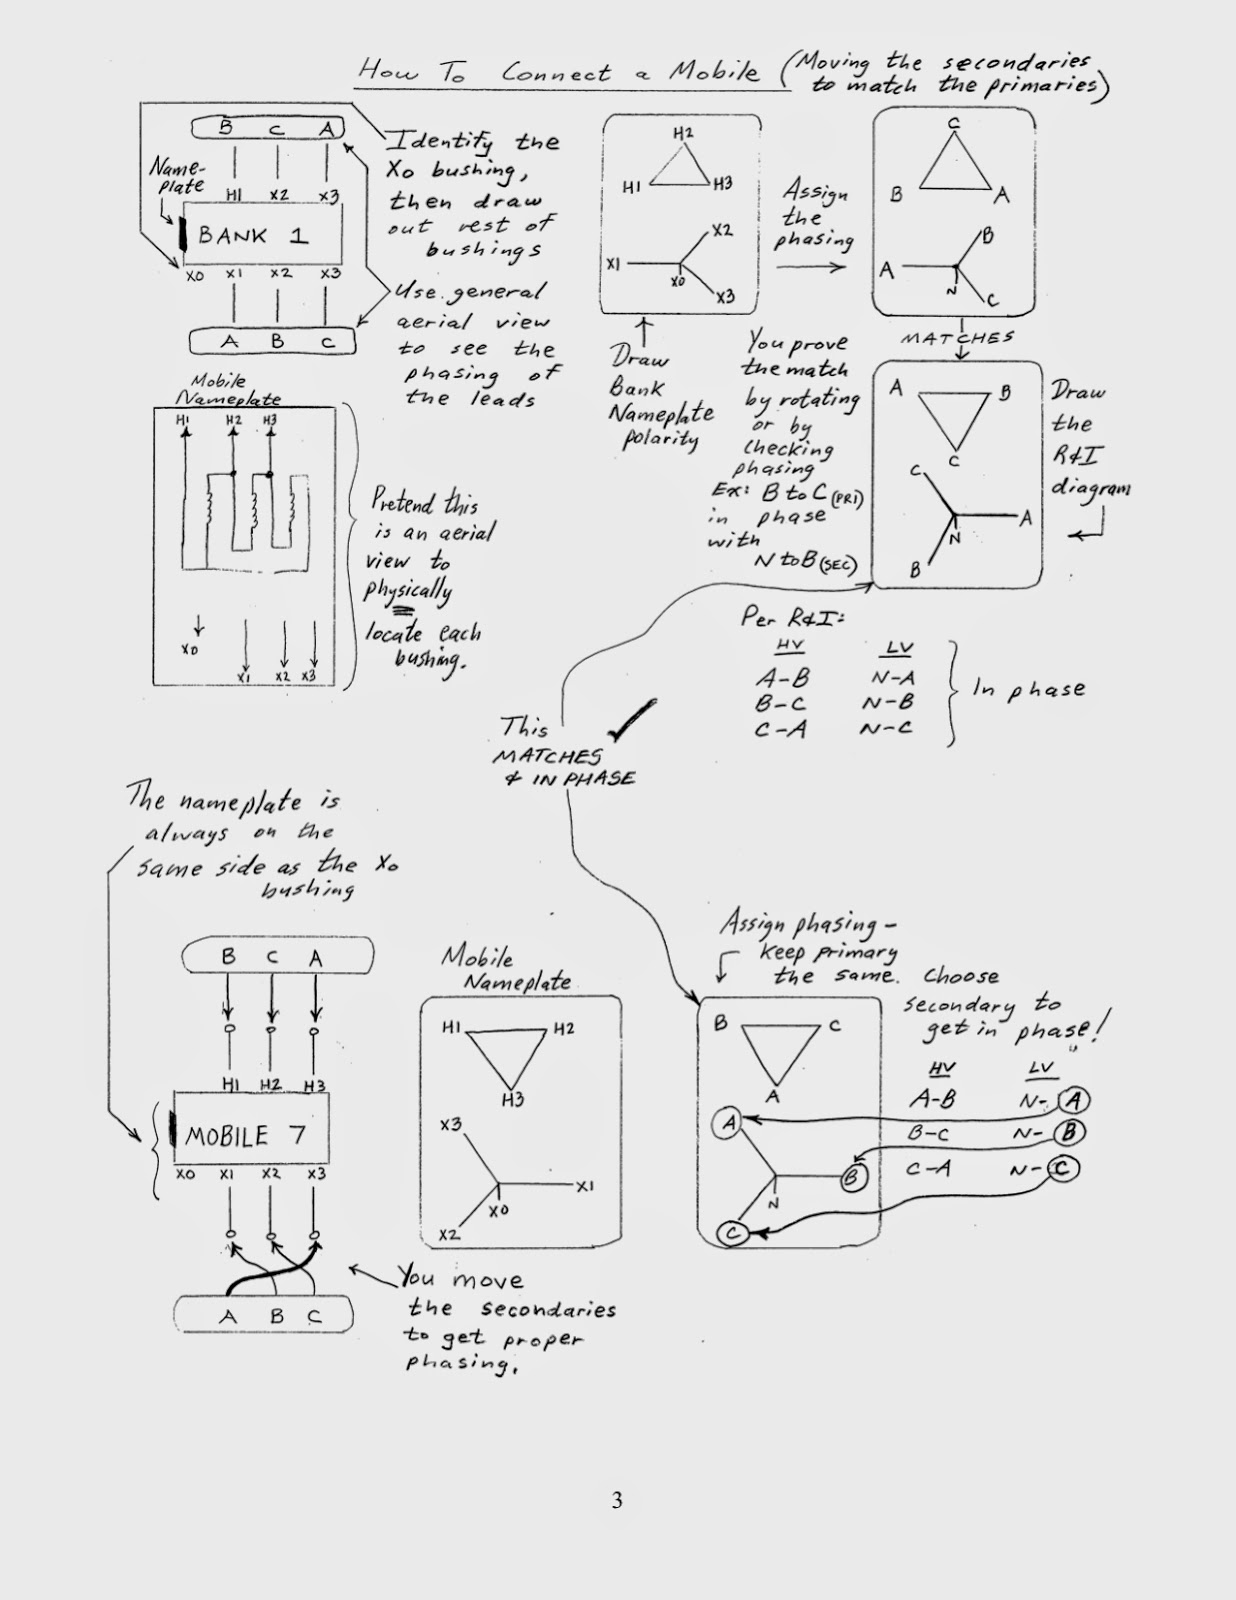 How To Connect a Mobile (Moving the secondaries
to match the primaries)
B C A
Name-
plate
H1 X2 X3
BANK 1
X0 X1 X2 X3
A B C
Identify the
X0 bushing,
then draw
out rest of
bushings
Use general
aerial view
to see the
phasing of
the leads
H2
H1 H3
X2
X1
X0
X3
Draw
Bank
Nameplate
polarity
Assign
the
phasing
C
B A
B
A
N
C
MATCHES
You prove
the match
by rotating
or by
checking
phasing
Ex: B to C (PRI)
in phase
with
N to B (SEC)
A B
C
C
A
N
B
Draw
the
R&I
diagram
Mobile
Nameplate
H1 H2 H3
X0
X1 X2 X3
Pretend this
is an aerial
view to
physically
locate each
bushing.
Per R&I:
HV LV
A-B N-A
B-C N-B
C-A N-C
In phase
This
MATCHES
& IN PHASE
The nameplate is
always on the
same side as the X0
bushing
B C A
H1 H2 H3
MOBILE 7
X0 X1 X2 X3
A B C
You move
the secondaries
to get proper
phasing.
Mobile
Nameplate
H1 H2
H3
X3
X1
X0
X2
Assign phasing -
keep primary
the same. Choose
secondary to
get in phase!
B C
A
A
B
N
C
HV LV
A-B N-A
B-C N-B
C-A N-C
3